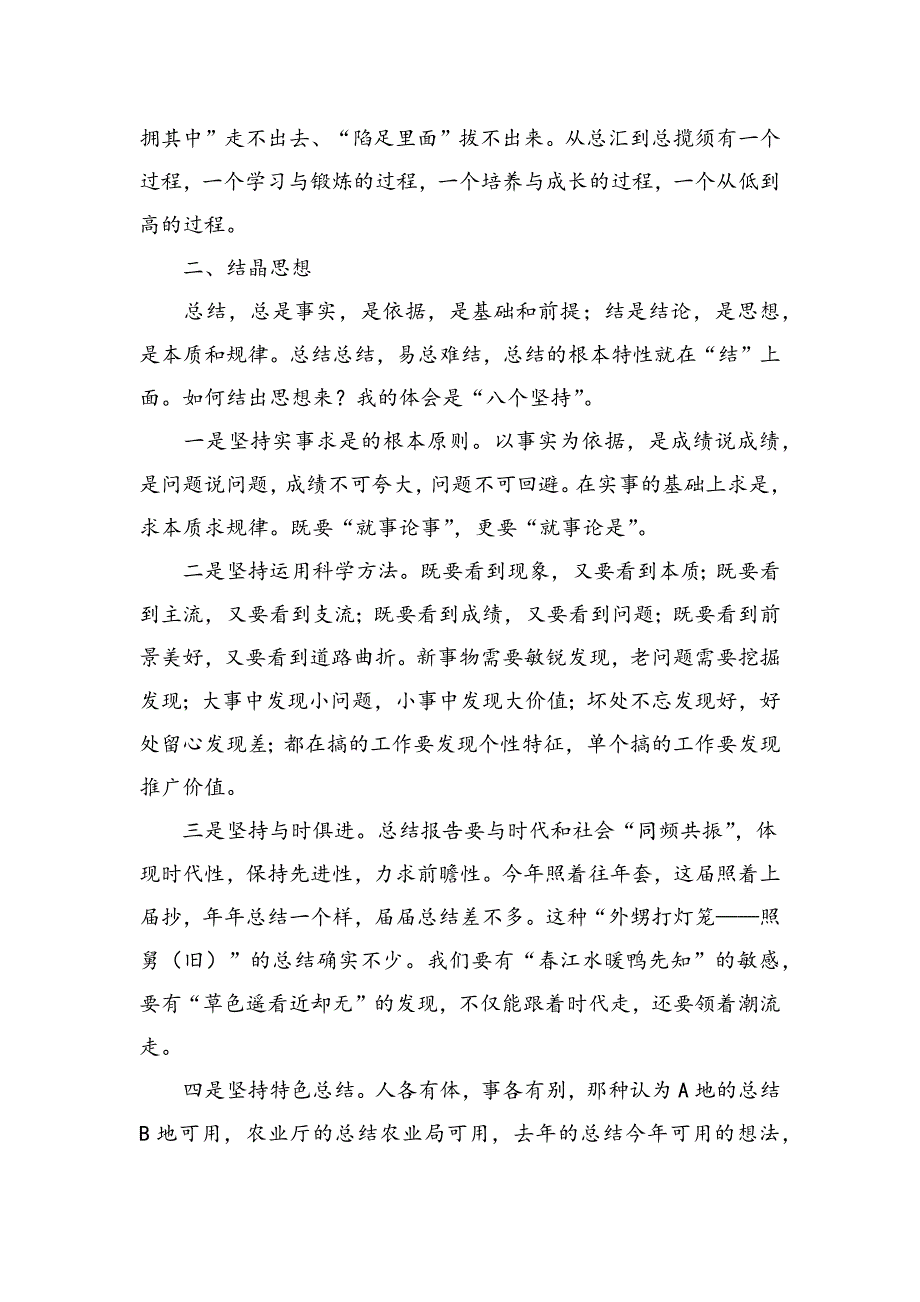 拥其中”走不出去、“陷足里面”拔不出来。从总汇到总揽须有一个
过程，一个学习与锻炼的过程，一个培养与成长的过程，一个从低到
高的过程。
二、结晶思想
总结，总是事实，是依据，是基础和前提；结是结论，是思想，
是本质和规律。总结总结，易总难结，总结的根本特性就在“结”上
面。如何结出思想来？我的体会是“八个坚持”。
一是坚持实事求是的根本原则。以事实为依据，是成绩说成绩，
是问题说问题，成绩不可夸大，问题不可回避。在实事的基础上求是，
求本质求规律。既要“就事论事”，更要“就事论是”。
二是坚持运用科学方法。既要看到现象，又要看到本质；既要看
到主流，又要看到支流；既要看到成绩，又要看到问题；既要看到前
景美好，又要看到道路曲折。新事物需要敏锐发现，老问题需要挖掘
发现；大事中发现小问题，小事中发现大价值；坏处不忘发现好，好
处留心发现差；都在搞的工作要发现个性特征，单个搞的工作要发现
推广价值。
三是坚持与时俱进。总结报告要与时代和社会“同频共振”，体
现时代性，保持先进性，力求前瞻性。今年照着往年套，这届照着上
届抄，年年总结一个样，届届总结差不多。这种“外甥打灯笼——照
舅（旧）”的总结确实不少。我们要有“春江水暖鸭先知”的敏感，
要有“草色遥看近却无”的发现，不仅能跟着时代走，还要领着潮流
走。
四是坚持特色总结。人各有体，事各有别，那种认为 A 地的总结
B 地可用，农业厅的总结农业局可用，去年的总结今年可用的想法，